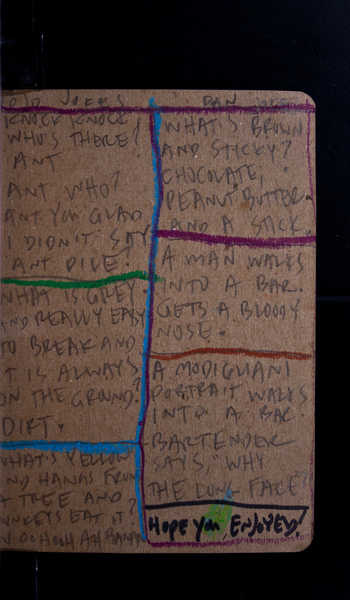 JOKES
KNOCK KNOCK!
WHO'S THERE?
ANT
ANT WHO?
ANT YOU GLAD
I DIDN'T SAY
ANT DIVE!
WHAT IS GREY
AND REALLY EASY
TO BREAK AND
IT IS ALWAYS
ON THE GROUND?
DIRT.
WHAT'S YELLOW
AND HANGS FROM
A TREE AND
MONKEYS EAT IT?
WHAT'S BROWN
AND STICKY?
CHOCOLATE,
PEANUT BUTTER
AND A STICK.
A MAN WALKS
INTO A BAR.
GETS A BLOODY
NOSE.
A MODIGLIANI
PORTRAIT WALKS
INTO A BAR.
BARTENDER
SAYS, "WHY
THE LONG FACE?
HOPE YOU ENJOYED!